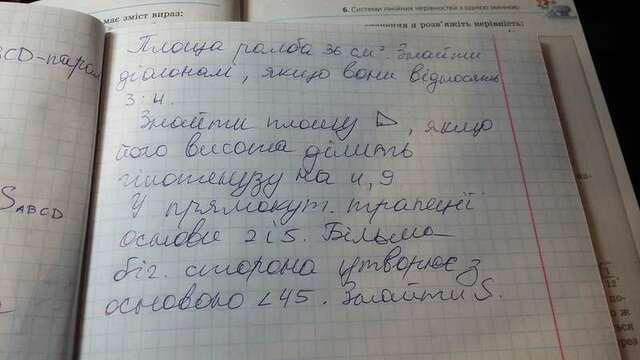 має зміст вираз:
6. Системи лінійних нерівностей з однією змінною
розв'яжіть нерівність:
BCD-парал
Площа ромба 36 см². Знайти
діагонал, якщо вони відносять
3:4.
Знайти площу ◺, якщо
його висота ділить
гіпотенузу на 4, 9
SABCD
У прямокут. трапеції
основи 2 і 5. Більша
біч. сторона утворює з
основою <45. Знайти S.